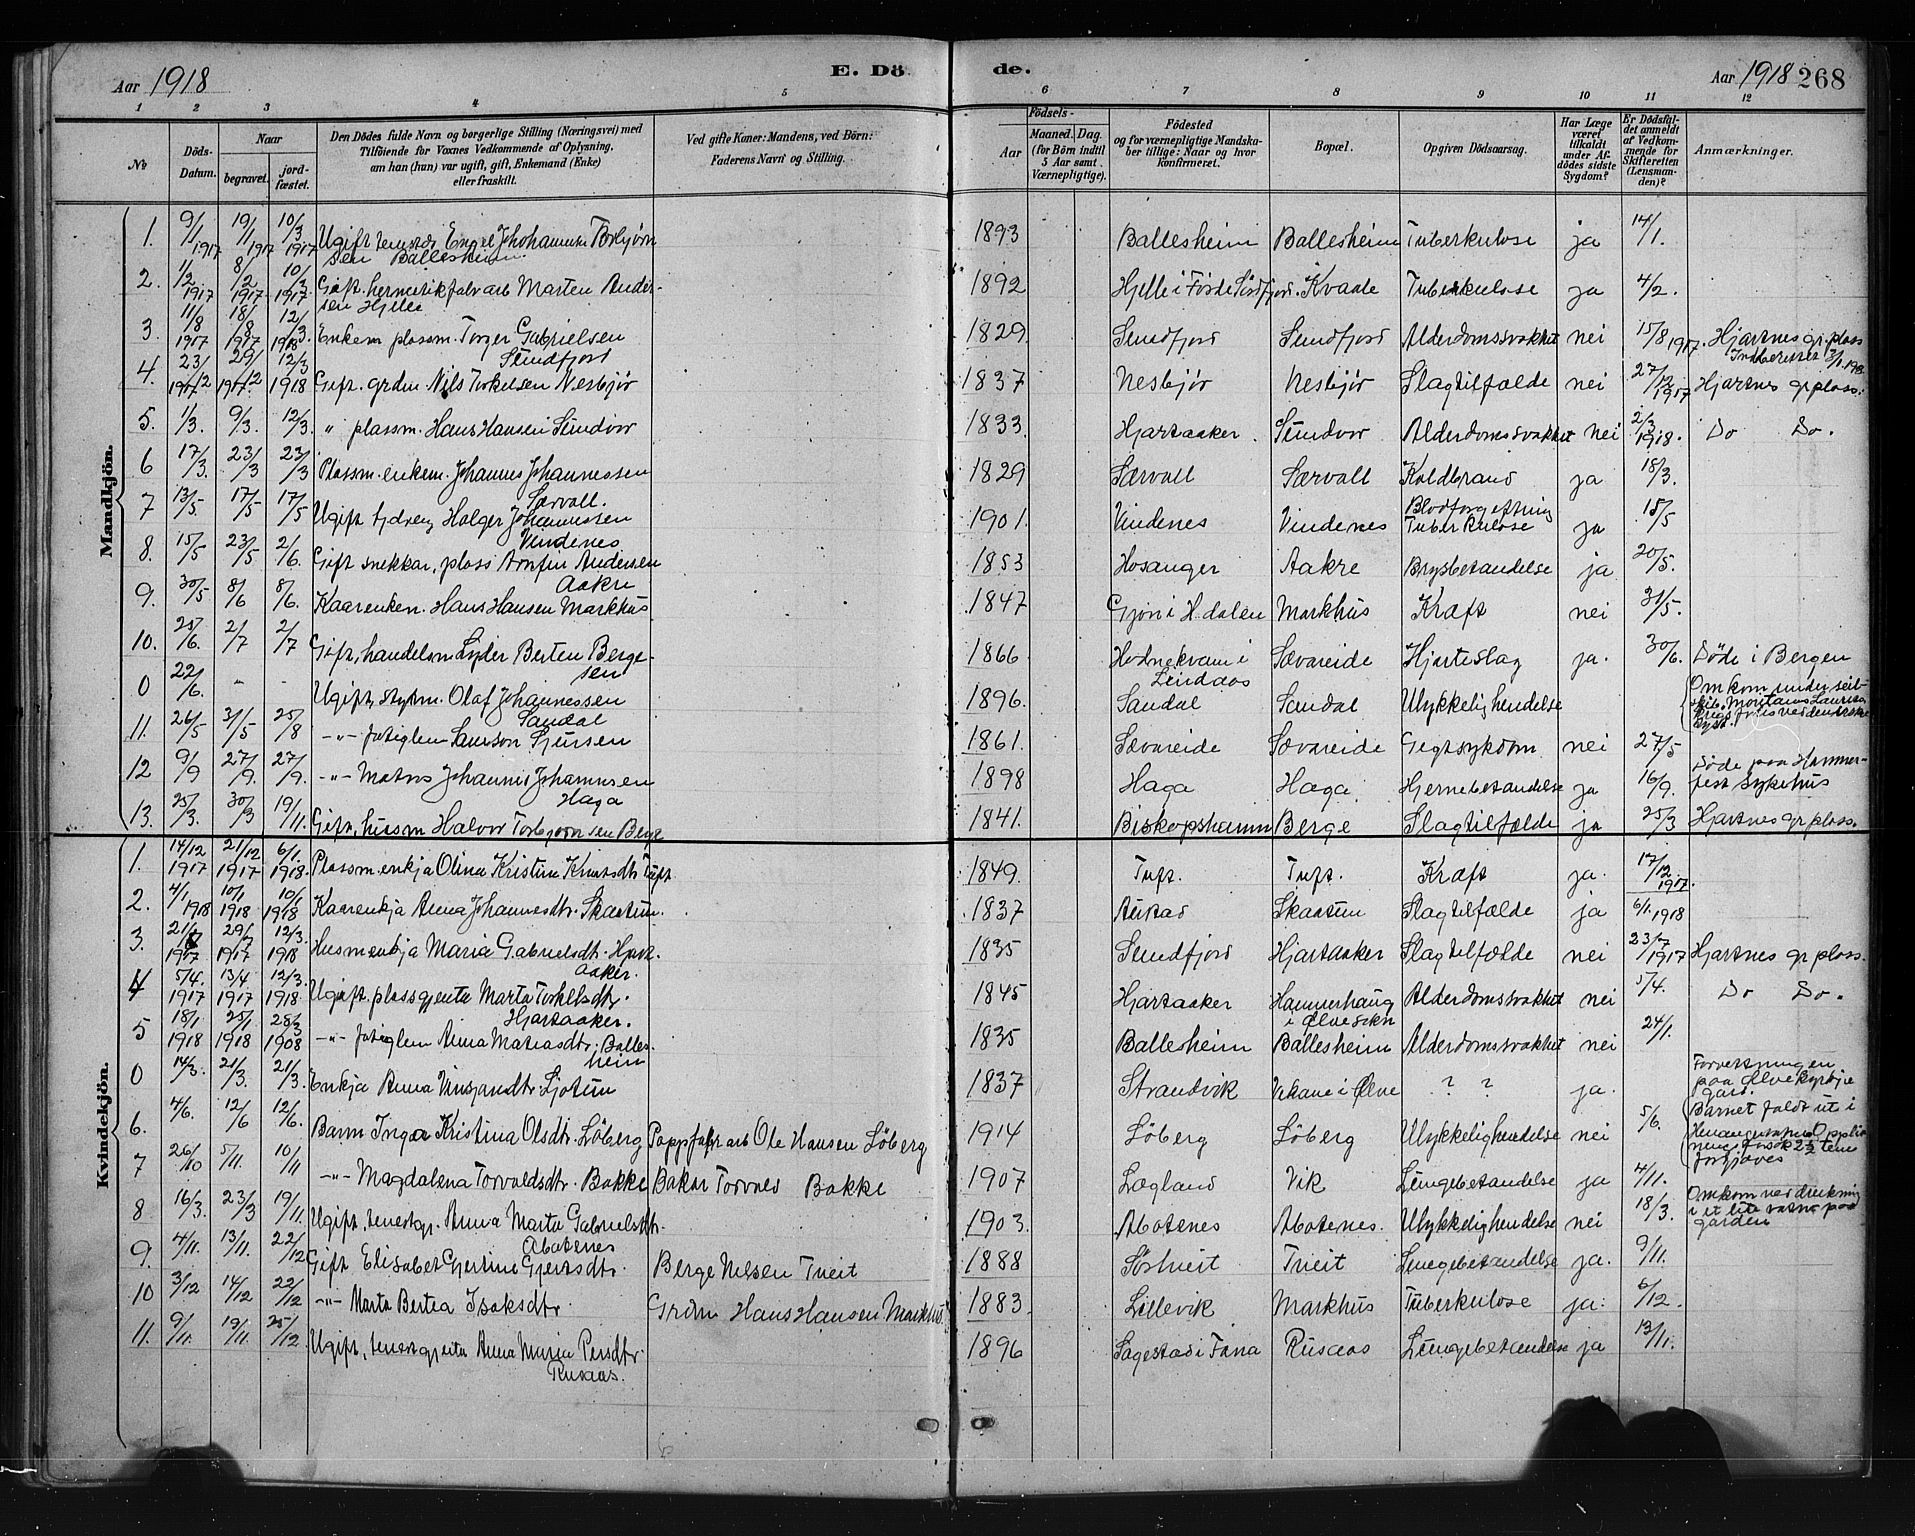 Aar 1918
E. Dö
de.
Aar 1918 268
1 2 3 4 5 6 7 8 9 10 11 12
№
Döds-Datum.
Naar
begravet.
jordfæstet.
Den Dödes fulde Navn og borgerlige Stilling (Næringsvei) med
Tilföiende for Voxnes Vedkommende af Oplysning,
om han (hun) var ugift, gift, Enkemand (Enke)
eller fraskilt.
Ved gifte Koner: Mandens, ved Börn:
Faderens Navn og Stilling.
Födsels-
Aar
Maaned. Dag.
(for Börn indtil
5 Aar samt
Værnepligtige).
Födested
og for værnepligtige Mandskaber tillige: Naar og hvor
konfirmeret.
Bopæl.
Opgiven Dödsaarsag.
Har Læge
været
tilkaldt
under Afdödes sidste
Sygdom?
Er Dödsfaldet anmeldt
af Vedkommende for
Skifteretten
(Lensmanden)?
Anmærkninger.
Mandkjön.
1. 9/1 1917 19/1 1917 10/3 1917 Ugift, Engel Johannes Torbjørnsen Ballesheim 1893 Ballesheim Ballesheim Tuberkulose ja 14/1.
2. 1/2 1917 8/2 1917 10/3 1917 Gift. hermetikfabr arb Marten Andersen Hjelle 1892 Hjelle i Førde Kvaale Tuberkulose ja 4/2.
3 11/8 1917 18/8 1917 12/3 1918 Enkem plassm. Torger Gabrielsen Sundfjord 1829 Sundfjord Sundfjord Alderdomssvakhet nei 15/8 1917. Hjartnes gr. plass
4. 23/12 1917 29/12 1917 12/3 1918 Gift. grdm Nils Torkelsen Nesbjør 1837 Nesbjør Nesbjør Slagtilfælde nei 27/12 1917 Hjartnes gr plass.
5. 1/3. 9/3. 12/3. " plassm. Hans Hansen Sundvor 1833. Hjartaaker. Sundvor Alderdomssvakhet nei 2/3 1918. Do Do.
6 17/3. 23/3 23/3 Plassm. enkem. Johannes Johannessen Særvoll. 1829 Særvoll Særvoll Koldbrand ja 18/3.
7 13/5. 17/5 17/5 Ugift Holger Johannessen Vindenes 1901. Vindenes Vindenes Blodforgiftning Tuberkulose ja 15/5
8. 15/5 23/5 2/6. Gift snekkar, plass Arnfin Andersen Aakre 1853 Hosanger Aakre Brysbetændelse ja 20/5.
9. 30/5 8/6 8/6. Kaarenkem. Hans Hansen Markhus 1847 Gjøn i H.dalen Markhus Kræft nei 31/5.
10. 25/6. 2/7 2/7 Gift, handelsm Lyder Berten Bergesen 1866 Hodnekvam i Lindaas Sævareide Hjerteslag ja. 30/6. Døde i Bergen
0 22/6. - - Ugift, styrm. Olaf Johannessen Sandal 1896. Sandal Sandal Ulykkelig hendelse Omkom under
11. 26/5 31/5 25/8 -"- fatiglem Samson Sjursen 1861. Sævareide Sævareide Gigtsykdom nei 27/5
12 9/9 27/9. 27/9. -"- Matros Johannes Johannesen Haga 1898 Haga Haga. Hjernebetændelse ja 16/9. Døde paa Hammerfest Sykehus
13. 25/3. 30/3 19/11. Gift, husm Halvor Torbjørnsen Berge 1841. Biskopshamn Berge Slagtilfælde ja 25/3 Hjartnes gr plass.
Kvindekjön.
1. 14/12 1917 21/12 1917 6/1. 1918. Plassm enkja Olina Kristine Knutsdtr Tuft 1849. Tuft. Tuft. Kræft ja. 17/12 1917.
2. 4/1 1918 10/1 1918 10/1 1918 Kaarenkja Anna Johannesdtr. Skaatun. 1837 Austad Skaatun Slagtilfælde ja 6/1. 1918
3. 21/7 1917 29/7 1917 12/3. 1918 Husmenkja Maria Gabrielsdtr. Hjartaaker. 1835 Sundfjord Hjartaaker Slagtilfælde nei 23/7 1917 Hjartnes gr plass.
4 5/4. 1917 13/4 1917 12/3. 1918. Ugift plassgjenta Marta Torkelsdtr. Hjartaaker. 1845 Hjartaaker Hammerhaug i Ølve sokn Alderdomssvakhet nei 5/4. Do Do.
5 18/1 1918 25/1 1918 28/3 1908 -"- fatiglem Anna Matiasdtr. Ballesheim 1835 Ballesheim Ballesheim Alderdomssvakhet nei 24/1.
0 14/3. 21/3. 21/3. Enkja Anna Ljotun 1837 Strandvik Vikane i Ølve ? ? ja. paa Ølve kyrkjegard.
6. 4/6. 12/6 12/6. Barn Inga Kristina Olsdtr. Løberg Pappfabr arb Ole Hansen Løberg 1914 Løberg Løberg Ulykkelig hendelse nei 5/6. Barnet faldt ut i
7 26/10 5/11. 10/11 -"- Magdalena Torvaldsdtr. Bakke Bakar Torvald Bakke 1907 Lægland Vik Lungebetændelse ja 4/11.
8 16/3. 23/3 19/11. Ugift, tenestgj. Anna Marta Gabrielsdtr. Abotsnes 1903. Abotsnes Abotsnes. Ulykkelig hendelse nei 18/3. Omkom ved drukning i et lite vatn paa garden
9. 4/11. 13/11. 22/12 Gift Elisabet Gjertine Gjertsdtr. Berge Nilsen Tveit 1888 Søstveit Tveit Lungebetændelse ja. 9/11.
10 3/12 14/12 22/12 -"- Marta Bertea Isaksdtr. Grdm Hans Hansen Markhus 1883. Lillevik Markhus Tuberkulose ja. 6/12.
11. 9/11. 19/11. 25/12. Ugift, tenestgjenta Anna Maria Persdtr. Rusaas. 1896 Sagestad i Fana Rusaas Lungebetændelse ja 13/11.